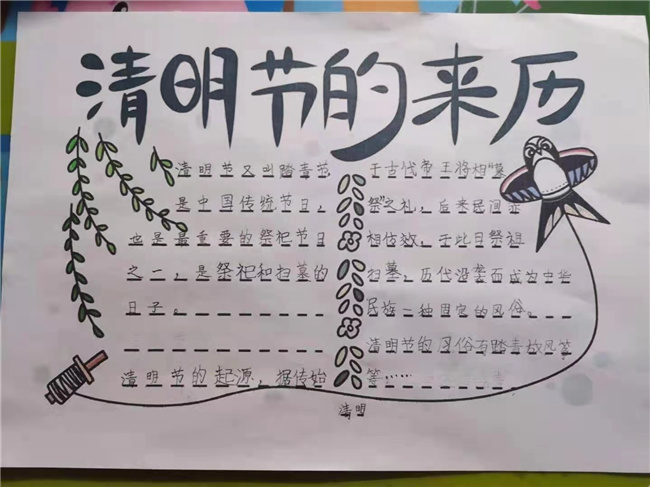 清明节的来历
清明节又叫踏青节
是中国传统节日，
也是最重要的祭祀节日
之一，是祭祀和扫墓的
日子。
清明节的起源，据传始
于古代帝王将相"墓
祭"之礼，后来民间亦
相仿效，于此日祭祖
扫墓，历代沿袭而成为中华
民族一种固定的风俗。
清明节的习俗有踏青放风筝
等……
清明